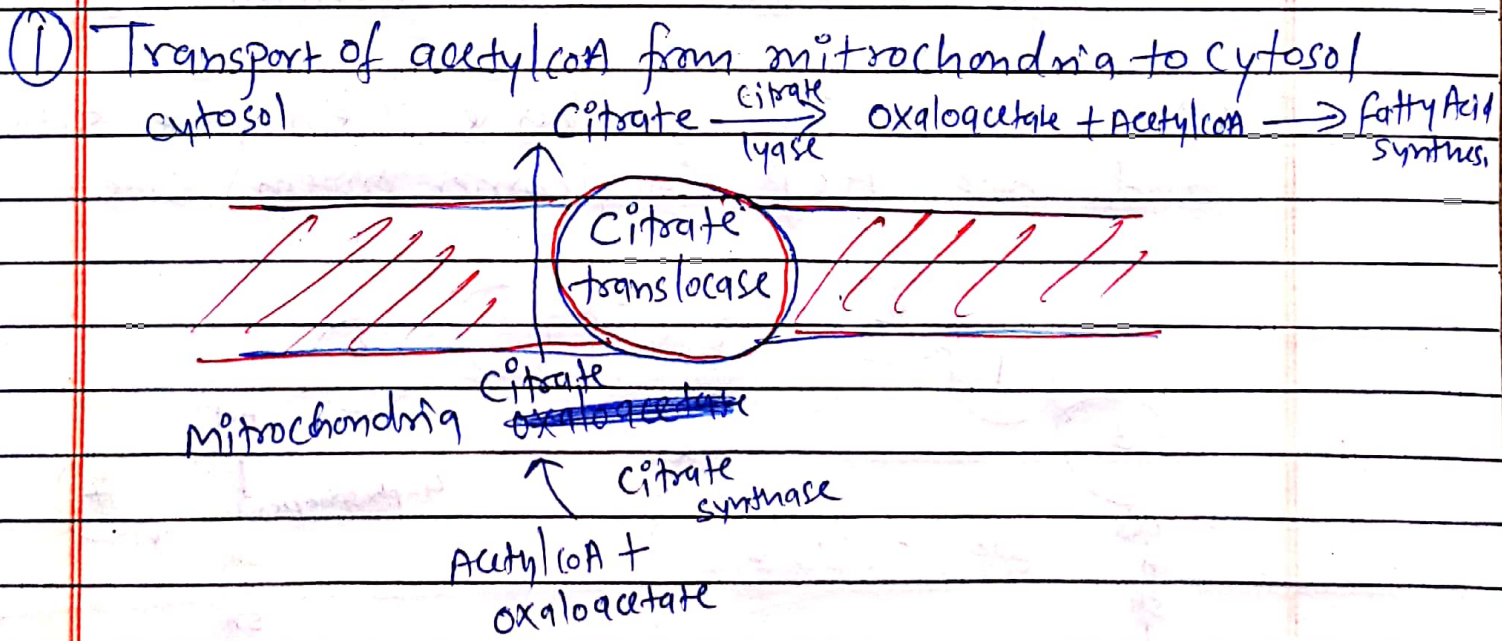 ① Transport of acetylcoA from mitrochondria to cytosol
cytosol Citrate citrate lyase → oxaloacetate + AcetylcoA → fatty Acid synthes.
Citrate
translocase
Citrate
Mitrochondria oxaloacetate
Citrate
synthase
AcetylcoA +
oxaloacetate